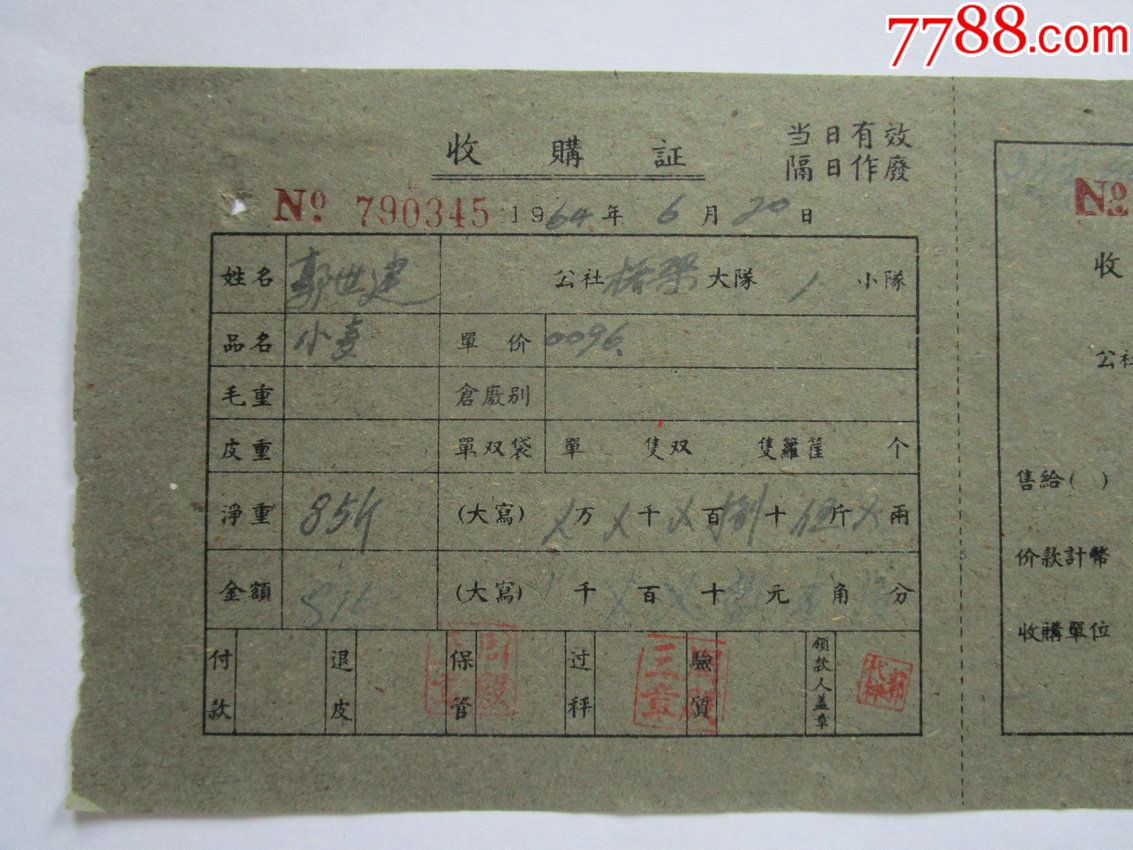 7788.com
收購証
当日有效
隔日作廢
№ 790345 1964年 6月20日
姓名 郭世建 公社 大隊 1 小隊
品名 小麦 單价 0096
毛重 倉廒別
皮重 單双袋 單 隻双 隻籮筐 个
淨重 85斤 (大寫) ×万×千×百捌十伍斤×兩
金額 816 (大寫) 千×百×十捌元 角 分
付款 退皮 保管 过秤 驗質 領款人盖章
№
收
公社
售給( )
价款計幣
收購單位